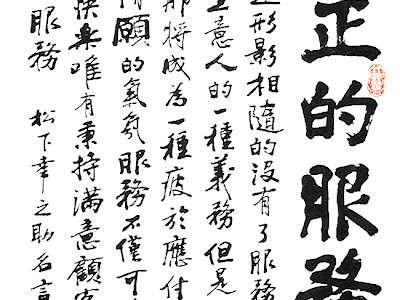 正的服務
形影相隨的沒有了服務
生意人的一種義務但是
那將成為一種疲於應付
情願的氣氛服務不僅可
快樂唯有秉持滿意顧客
服務 松下幸之助名言